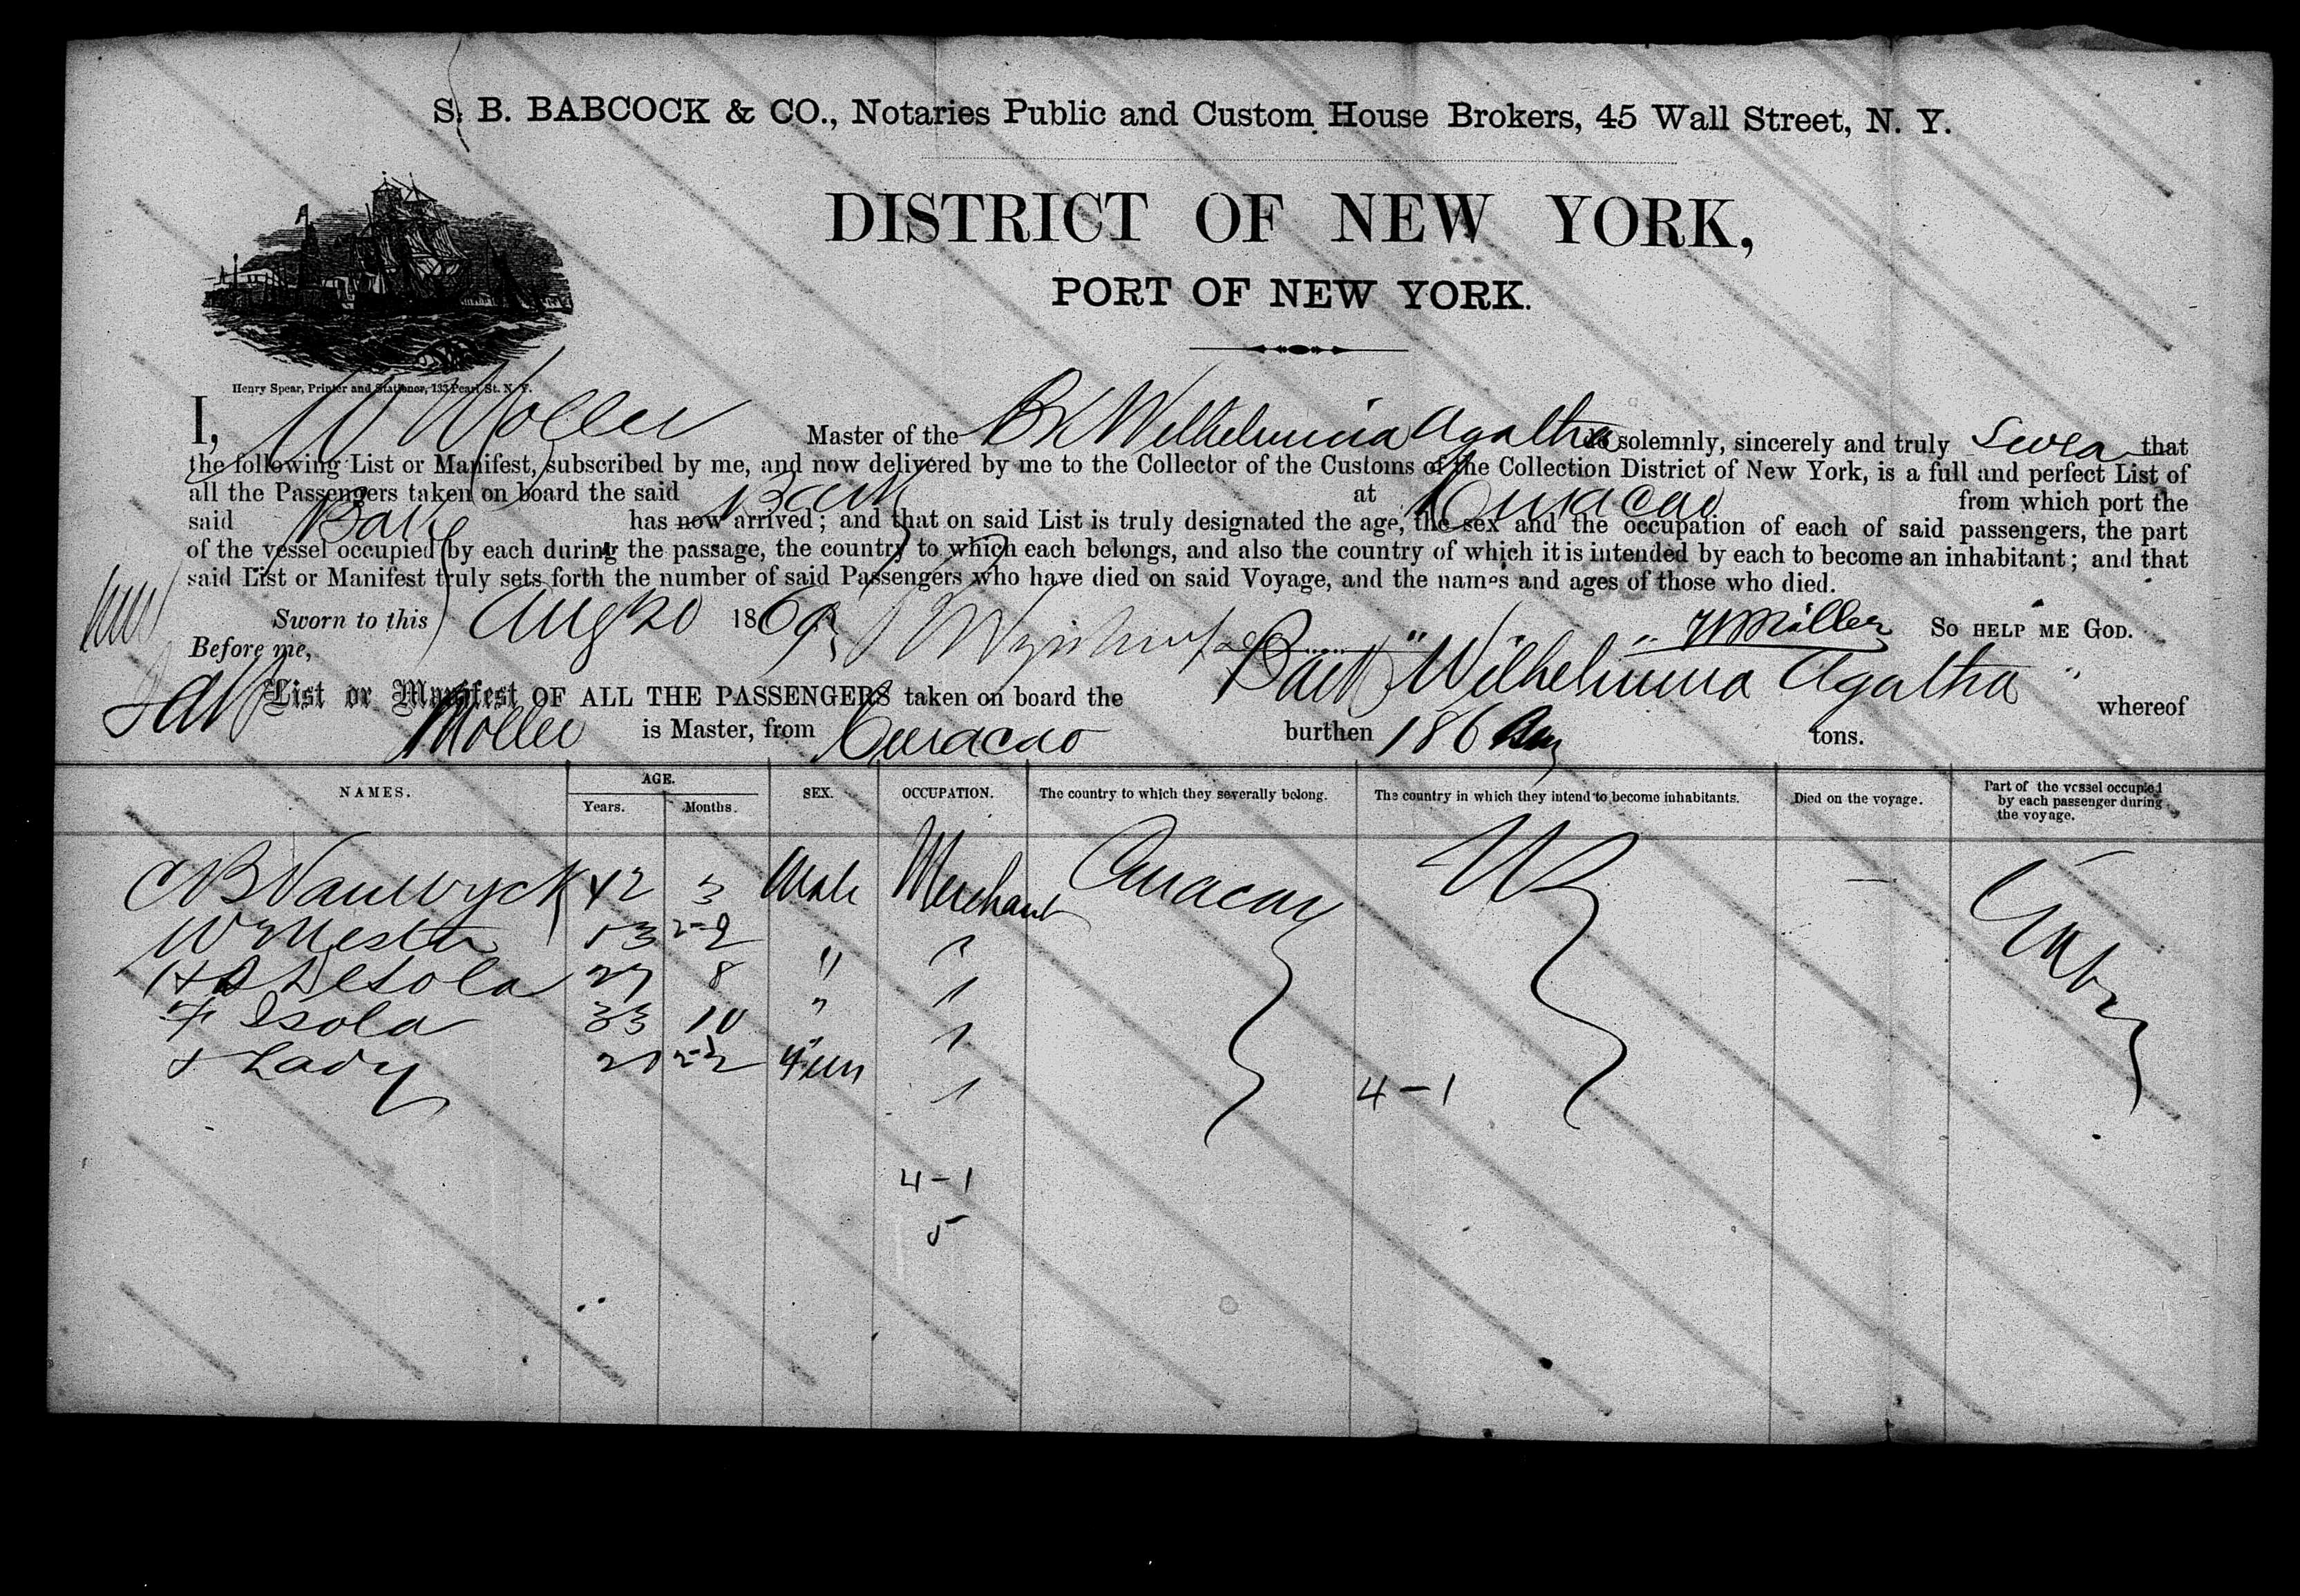 S. B. BABCOCK & CO., Notaries Public and Custom House Brokers, 45 Wall Street, N. Y.
DISTRICT OF NEW YORK,
PORT OF NEW YORK.
Henry Spear, Printer and Stationer, 133 Pearl St. N. Y.
I, W Moller Master of the Bk Wilhelmina Agatha do solemnly, sincerely and truly Swear that
the following List or Manifest, subscribed by me, and now delivered by me to the Collector of the Customs of the Collection District of New York, is a full and perfect List of
all the Passengers taken on board the said Bark at Curacao from which port the
said Bark has now arrived; and that on said List is truly designated the age, the sex and the occupation of each of said passengers, the part
of the vessel occupied by each during the passage, the country to which each belongs, and also the country of which it is intended by each to become an inhabitant; and that
said List or Manifest truly sets forth the number of said Passengers who have died on said Voyage, and the names and ages of those who died.
Sworn to this Aug 20 1869 W Möller SO HELP ME GOD.
Before me,
List or Manifest OF ALL THE PASSENGERS taken on board the Bark "Wilhelmina Agatha" whereof
Moller is Master, from Curacao burthen 186 tons.
NAMES. AGE. Years. Months. SEX. OCCUPATION. The country to which they severally belong. The country in which they intend to become inhabitants. Died on the voyage. Part of the vessel occupied by each passenger during the voyage.
C B Vanwyck 42 3 Male Merchant Curacao
W Mester 53
H D Desola 27 8 "
F Isola 33 10 "
+ Lady Fem
4-1
4-1
5